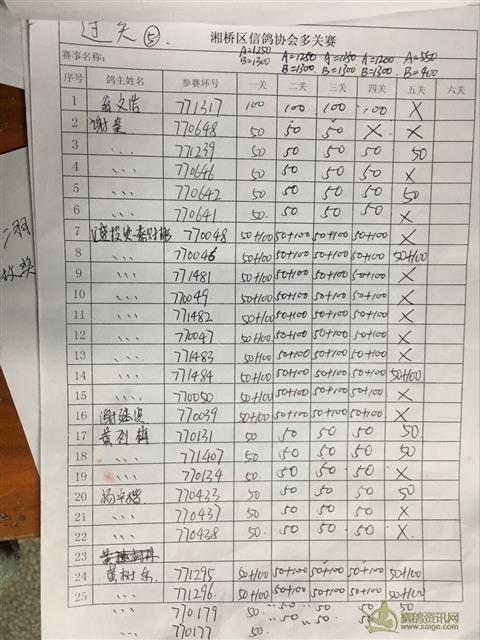 过关 ⑤.
湘桥区信鸽协会多关赛
A=1250 A=1250 A=1250 A=1200 A=550
B=1300 B=1300 B=1300 B=1300 B=400
赛事名称:
序号 鸽主姓名 参赛环号 一关 二关 三关 四关 五关 六关
1 翁文浩 771317 100 100 100 100 X
2 谢 770648 50 50 50 X X
3 、、、 771239 50 50 50 50 50
4 、、、 770646 50 50 50 50 X
5 、、、 770642 50 50 50 50 50
6 、、、 770641 50 50 50 50 X
7 770048 50+100 50+100 50+100 50+100 X
8 、、、 770046 50+100 50+100 50+100 50+100 50+100
9 、、、 771481 50+100 50+100 50+100 50+100 X
10 、、、 770049 50+100 50+100 50+100 50+100 X
11 、、、 771482 50+100 50+100 50+100 50+100 X
12 、、、 770047 50+100 50+100 50+100 50+100 X
13 、、、 771483 50+100 50+100 50+100 50+100 X
14 、、、 771484 50+100 50+100 50+100 50+100 50+100
15 、、、 770050 50+100 50+100 50+100 50+100 X
16 谢继 770039 50+100 50+100 50+100 50+100 X
17 黄 770131 50 50 50 50 50
18 、、、 771407 50 50 50 50 50
19 、、、 770134 50 50 50 50 X
20 杨 770433 50 50 50 50 50
21 、、、 770437 50 50 50 50 X
22 、、、 770438 50 50 50 50 X
23
24 黄树东 771295 50+100 50+100 50+100 50+100 50+100
25 、、、 771296 50+100 50+100 50+100 50+100 50+100
、、、 770179 50 50 50 50 50
、、、 770177 50 50 50 50
二羽
赛鸽资讯网
www.saige.com